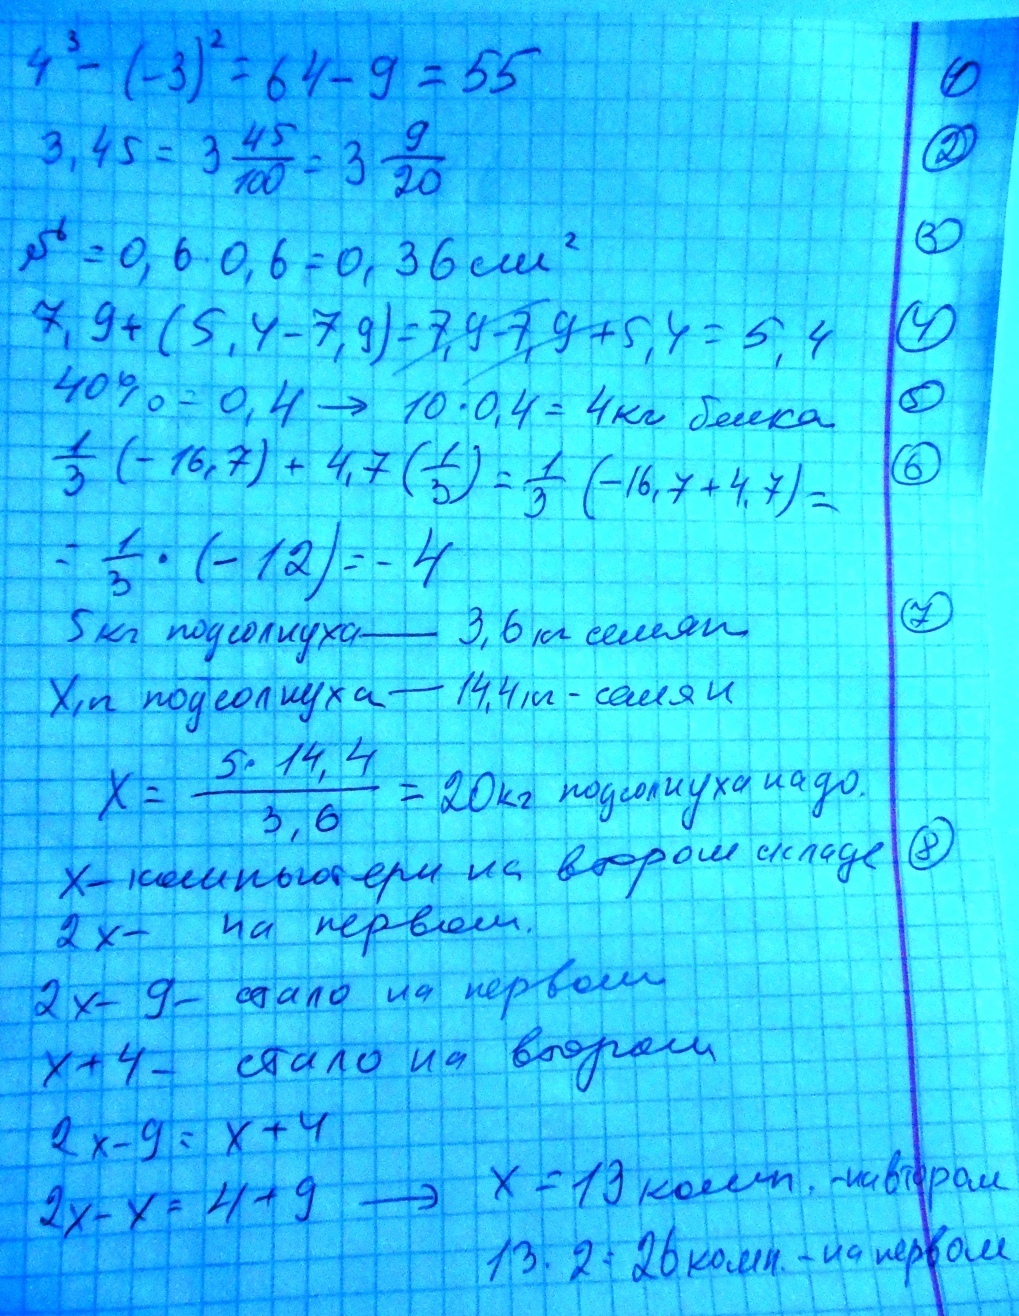 4³ - (-3)² = 64 - 9 = 55 ①
3,45 = 3 45/100 = 3 9/20 ②
= 0,6 · 0,6 = 0,36 см² ③
7,9 + (5,4 - 7,9) = 7,9 - 7,9 + 5,4 = 5,4 ④
40% = 0,4 → 10 · 0,4 = 4кг белка ⑤
1/3 (-16,7) + 4,7 (1/3) = 1/3 (-16,7 + 4,7) = ⑥
= 1/3 · (-12) = -4
5кг подсолнуха — 3,6 кг семян ⑦
X кг подсолнуха — 14,4 кг - семян
X = 5 · 14,4 / 3,6 = 20кг подсолнуха надо.
x - компьютеры на втором складе ⑧
2x - на первом.
2x - 9 - стало на первом
x + 4 - стало на втором
2x - 9 = x + 4
2x - x = 4 + 9 → x = 13 комп. - на втором
13 · 2 = 26 комп. - на первом